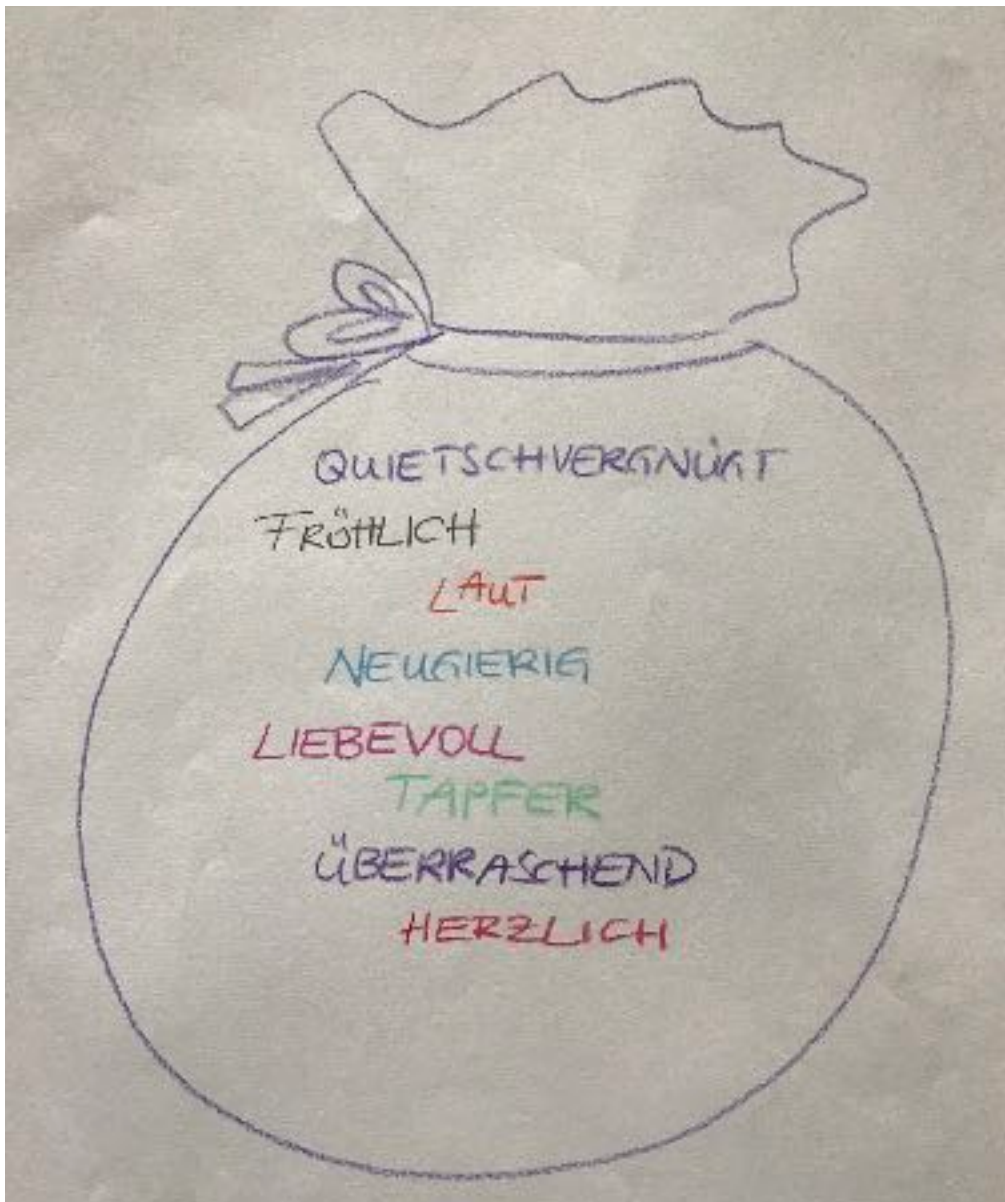 QUIETSCHVERGNÜGT
FRÖHLICH
LAUT
NEUGIERIG
LIEBEVOLL
TAPFER
ÜBERRASCHEND
HERZLICH